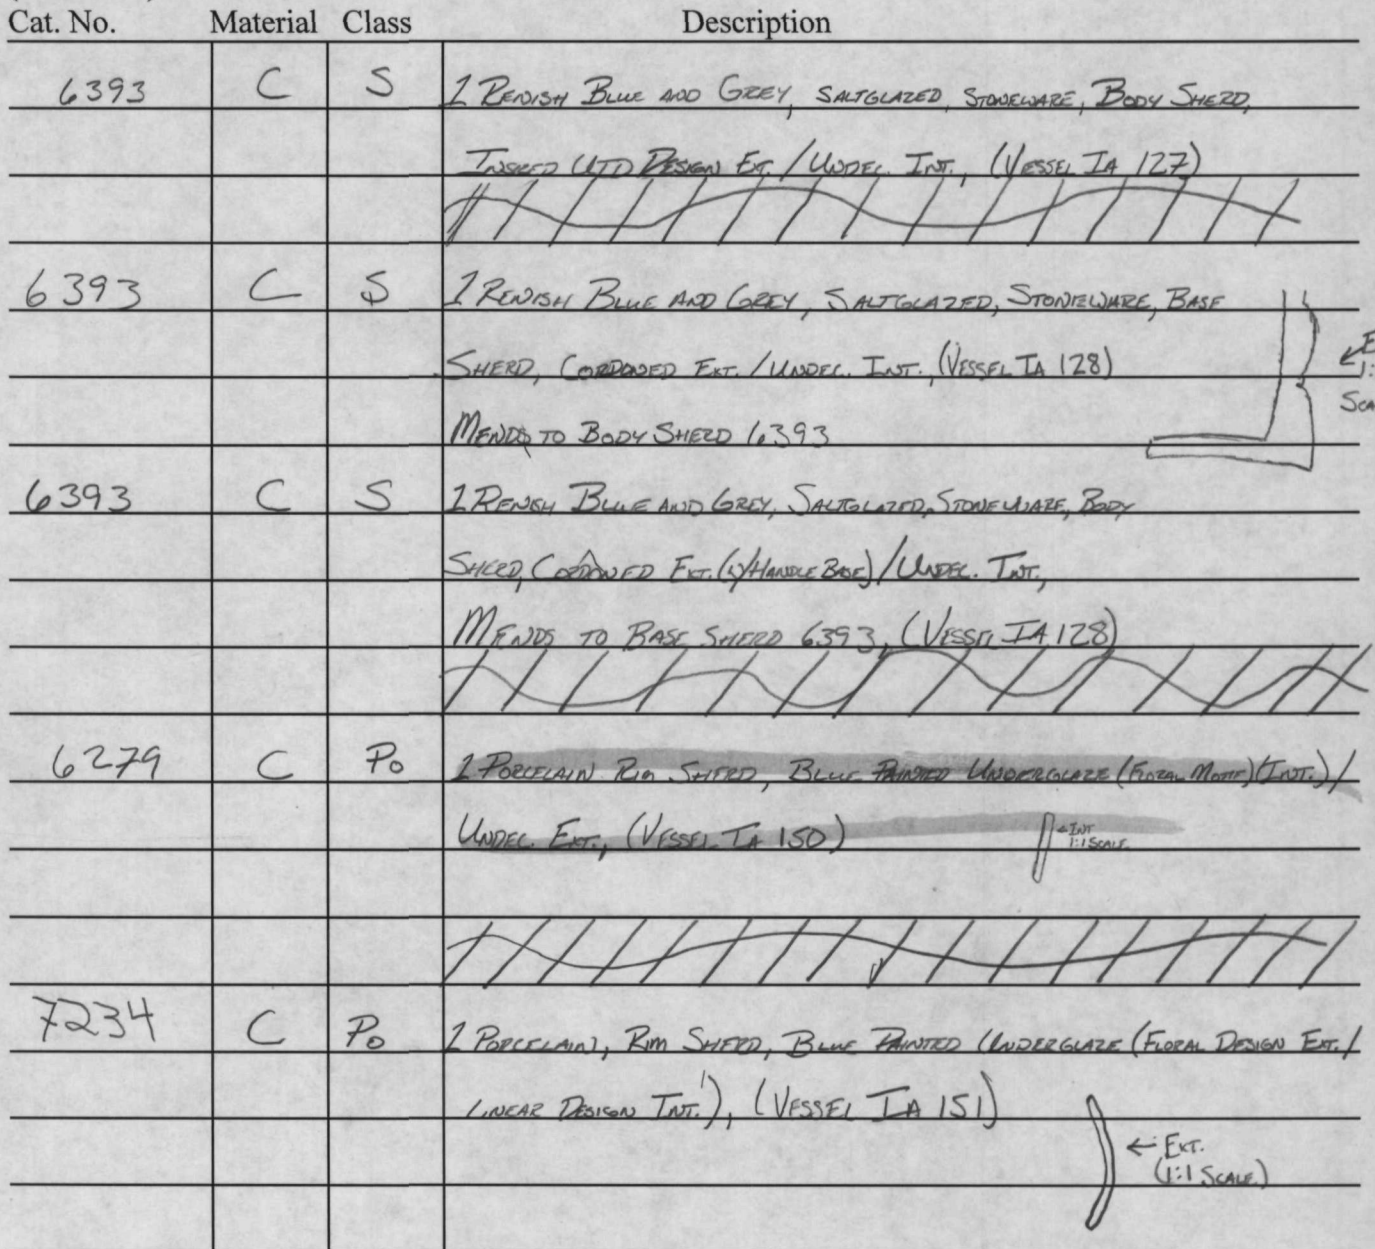 Cat. No. Material Class Description
6393 C S 1 RENISH BLUE AND GREY, SALTGLAZED, STONEWARE, BODY SHERD,
INSIZED UTD DESIGN EXT. / UNDEC. INT., (VESSEL IA 127)
6393 C S 1 RENISH BLUE AND GREY, SALTGLAZED, STONEWARE, BASE
SHERD, CORDONED EXT. / UNDEC. INT., (VESSEL IA 128)
MENDS TO BODY SHERD 6393
6393 C S 1 RENISH BLUE AND GREY, SALTGLAZED, STONEWARE, BODY
SHERD, CORDONED EXT. (W/HANDLE BASE) / UNDEC. INT.,
MENDS TO BASE SHERD 6393, (VESSEL IA 128)
6279 C Po 1 PORCELAIN RIM SHERD, BLUE PAINTED UNDERGLAZE (FLORAL MOTIF) (INT.) /
UNDEC. EXT., (VESSEL IA 150)
← INT
1:1 SCALE
7234 C Po 1 PORCELAIN, RIM SHERD, BLUE PAINTED UNDERGLAZE (FLORAL DESIGN EXT. /
LINEAR DESIGN INT.), (VESSEL IA 151)
← EXT.
(1:1 SCALE)